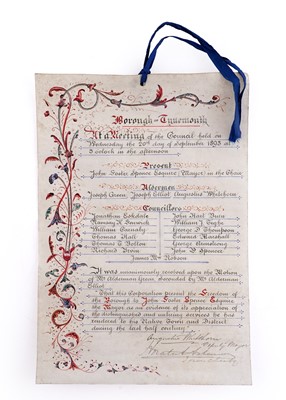 Borough of Tynemouth
At a Meeting of the Council held on
Wednesday the 20th day of September 1893 at
3 oclock in the afternoon
Present
John Foster Spence Esquire (Mayor) in the Chair
Aldermen
Joseph Green Joseph Elliot Augustus Whitehorn
Councillors
Jonathan Eskdale John Hall
Ramsay H. William J.
William George D. Thompson
Thomas Hall Edward Marshall
Thomas C. George Armstrong
Richard Irvin John B. Spencer
James Robson
It was unanimously resolved upon the Motion
of Mr Alderman Green Seconded by Mr Alderman
Elliot
That this Corporation present the Freedom of
the Borough to John Foster Spence Esquire
the Mayor as an evidence of its appreciation of
the distinguished and untiring services he has
rendered to his Native Town and District
during the last half century
Augustus Whitehorn
Mayor